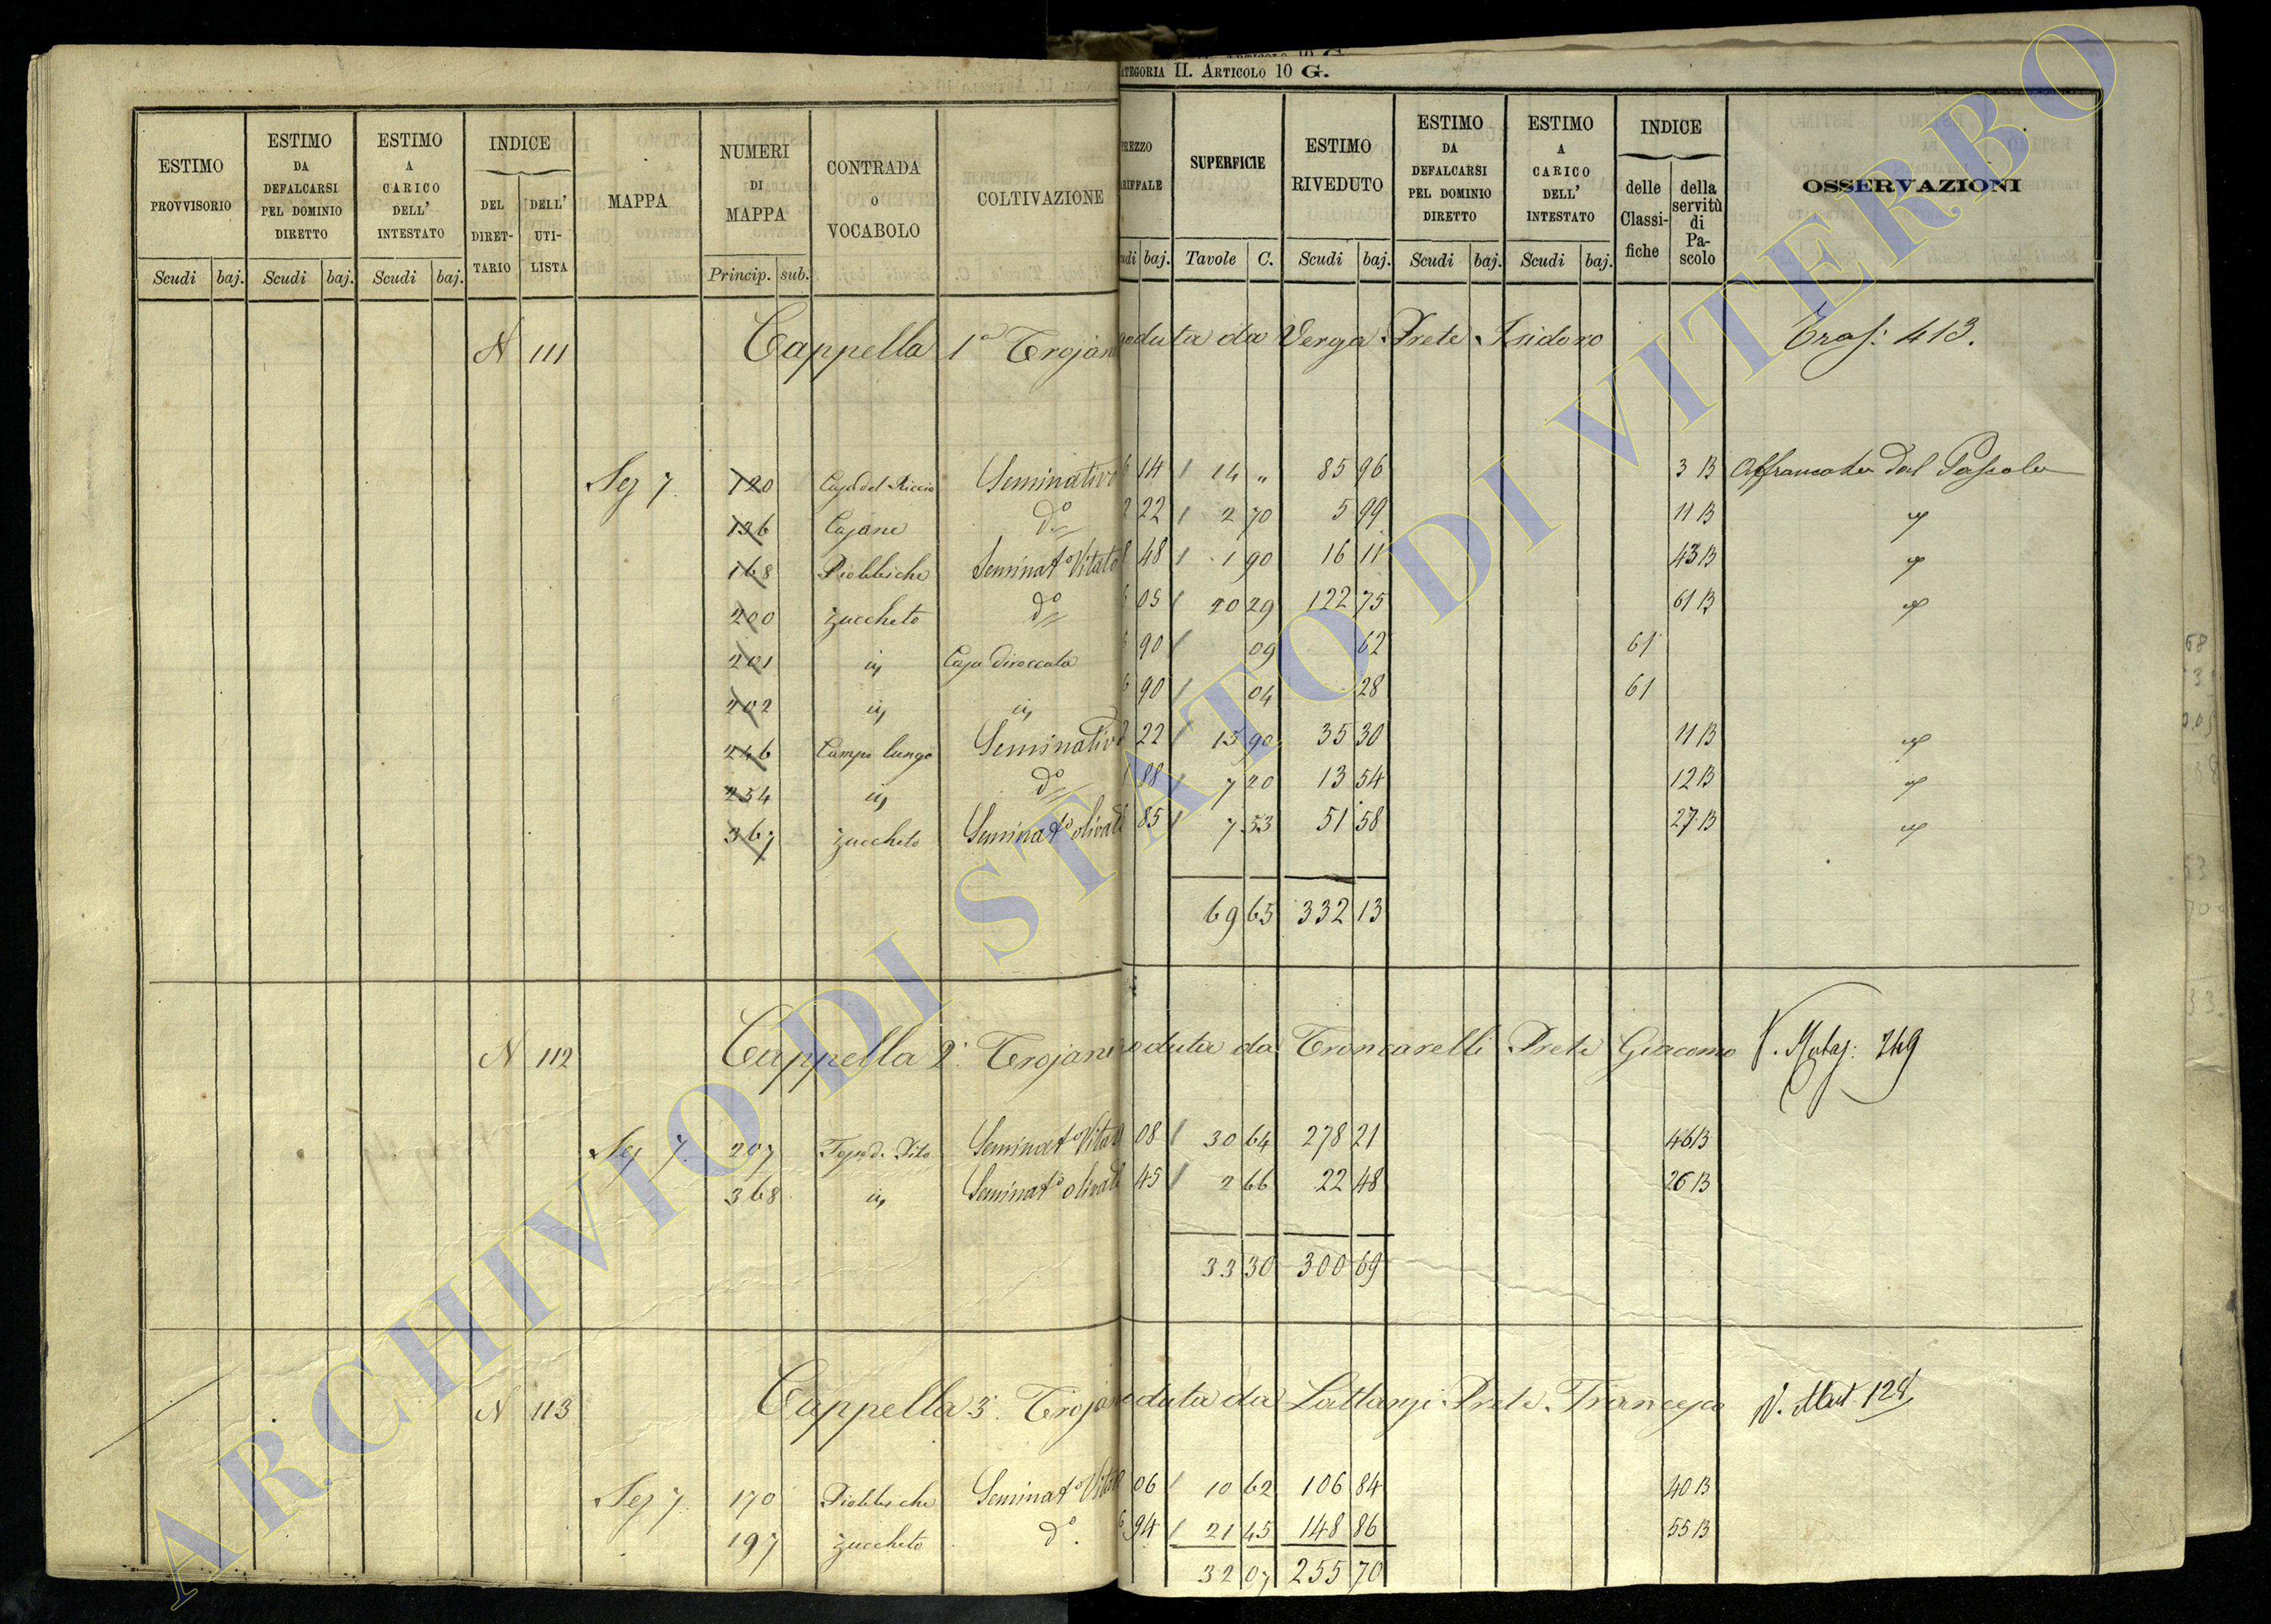 CATEGORIA II. ARTICOLO 10 G.
ESTIMO PROVVISORIO Scudi baj. ESTIMO DA DEFALCARSI PEL DOMINIO DIRETTO Scudi baj. ESTIMO A CARICO DELL' INTESTATO Scudi baj. INDICE DEL DIRET-TARIO DELL' UTI-LISTA MAPPA NUMERI DI MAPPA Princip. sub. CONTRADA o VOCABOLO COLTIVAZIONE PREZZO TARIFFALE Scudi baj. SUPERFICIE Tavole C. ESTIMO RIVEDUTO Scudi baj. ESTIMO DA DEFALCARSI PEL DOMINIO DIRETTO Scudi baj. ESTIMO A CARICO DELL' INTESTATO Scudi baj. INDICE delle Classi-fiche della servitù di Pa-scolo OSSERVAZIONI
N 111 Cappella 1ª Trojani goduta da Verga Prete Isidoro Tras: 413.
Sez 7. 120 Casa del Riccio Seminativo 6 14 14 „ 85 96 3 B Affrancata dal Pascolo
136 Casane dº 2 22 2 70 5 99 11 B
168 Piobbiche Seminatº Vitato 8 48 1 90 16 11 43 B
200 Zuccheto dº 6 05 20 29 122 75 61 B
201 id Casa diroccata 6 90 09 62 61
202 id id 6 90 04 28 61
246 Campo lungo Seminativo 2 22 15 90 35 30 11 B
254 id dº 1 88 7 20 13 54 12 B
367 Zuccheto Seminatº olivato 6 85 7 53 51 58 27 B
69 65 332 13
N 112 Cappella 2ª Trojani goduta da Troncarelli Prete Giacomo V. 749
Sez 7. 207 Seminatº Vitato 08 30 64 278 21 46 B
368 id Seminatº olivato 45 2 66 22 48 26 B
33 30 300 69
N 113 Cappella 3ª Trojani goduta da Lattanzi Prete Francesco V. Mut. 128
Sez 7. 170 Piobbiche Seminatº Vitato 06 10 62 106 84 40 B
197 Zuccheto dº. 6 94 21 45 148 86 55 B
32 07 255 70
ARCHIVIO DI STATO DI VITERBO